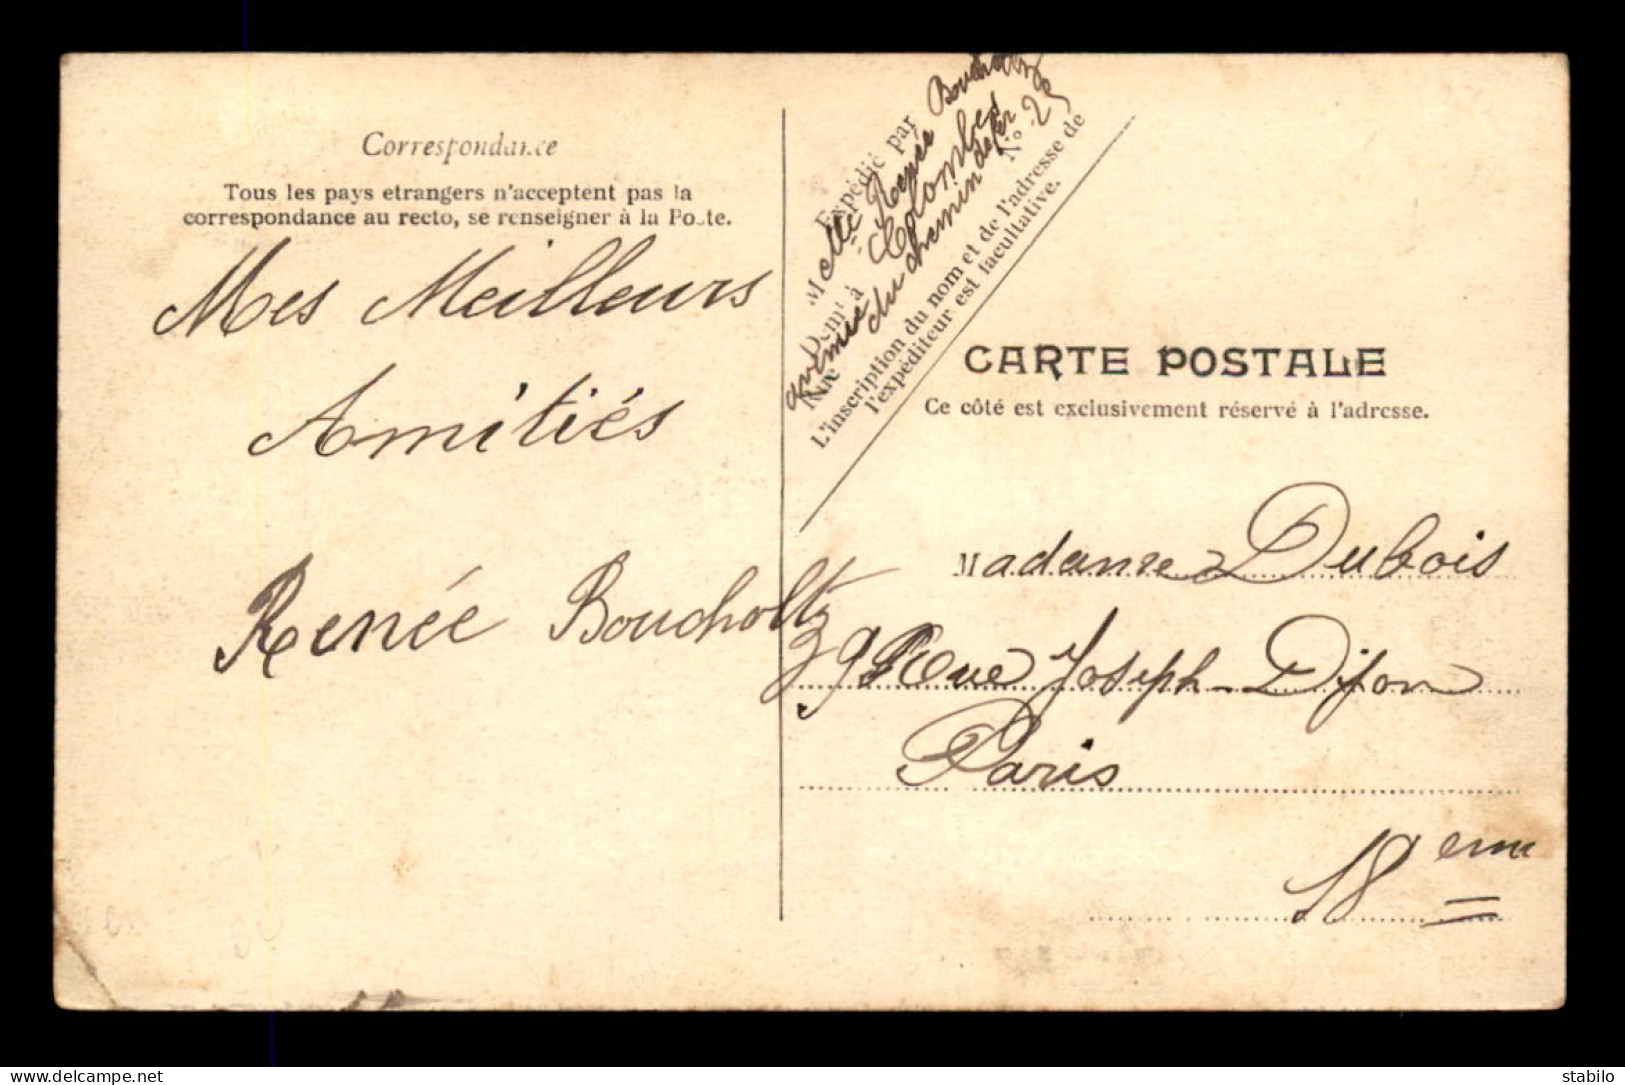 Correspondance
Tous les pays etrangers n'acceptent pas la
correspondance au recto, se renseigner à la Poste.
Mes Meilleurs
Amitiés
Renée Boucholtz
Expédié par Boucholtz
Melle Renée
Dem^t à Colombes
Rue avenue du chemin de fer N° 25
L'inscription du nom et de l'adresse de
l'expéditeur est facultative.
CARTE POSTALE
Ce côté est exclusivement réservé à l'adresse.
Madame Dubois
39 Rue Joseph-Dijon
Paris
18 eme
delcampe.net
stabilo